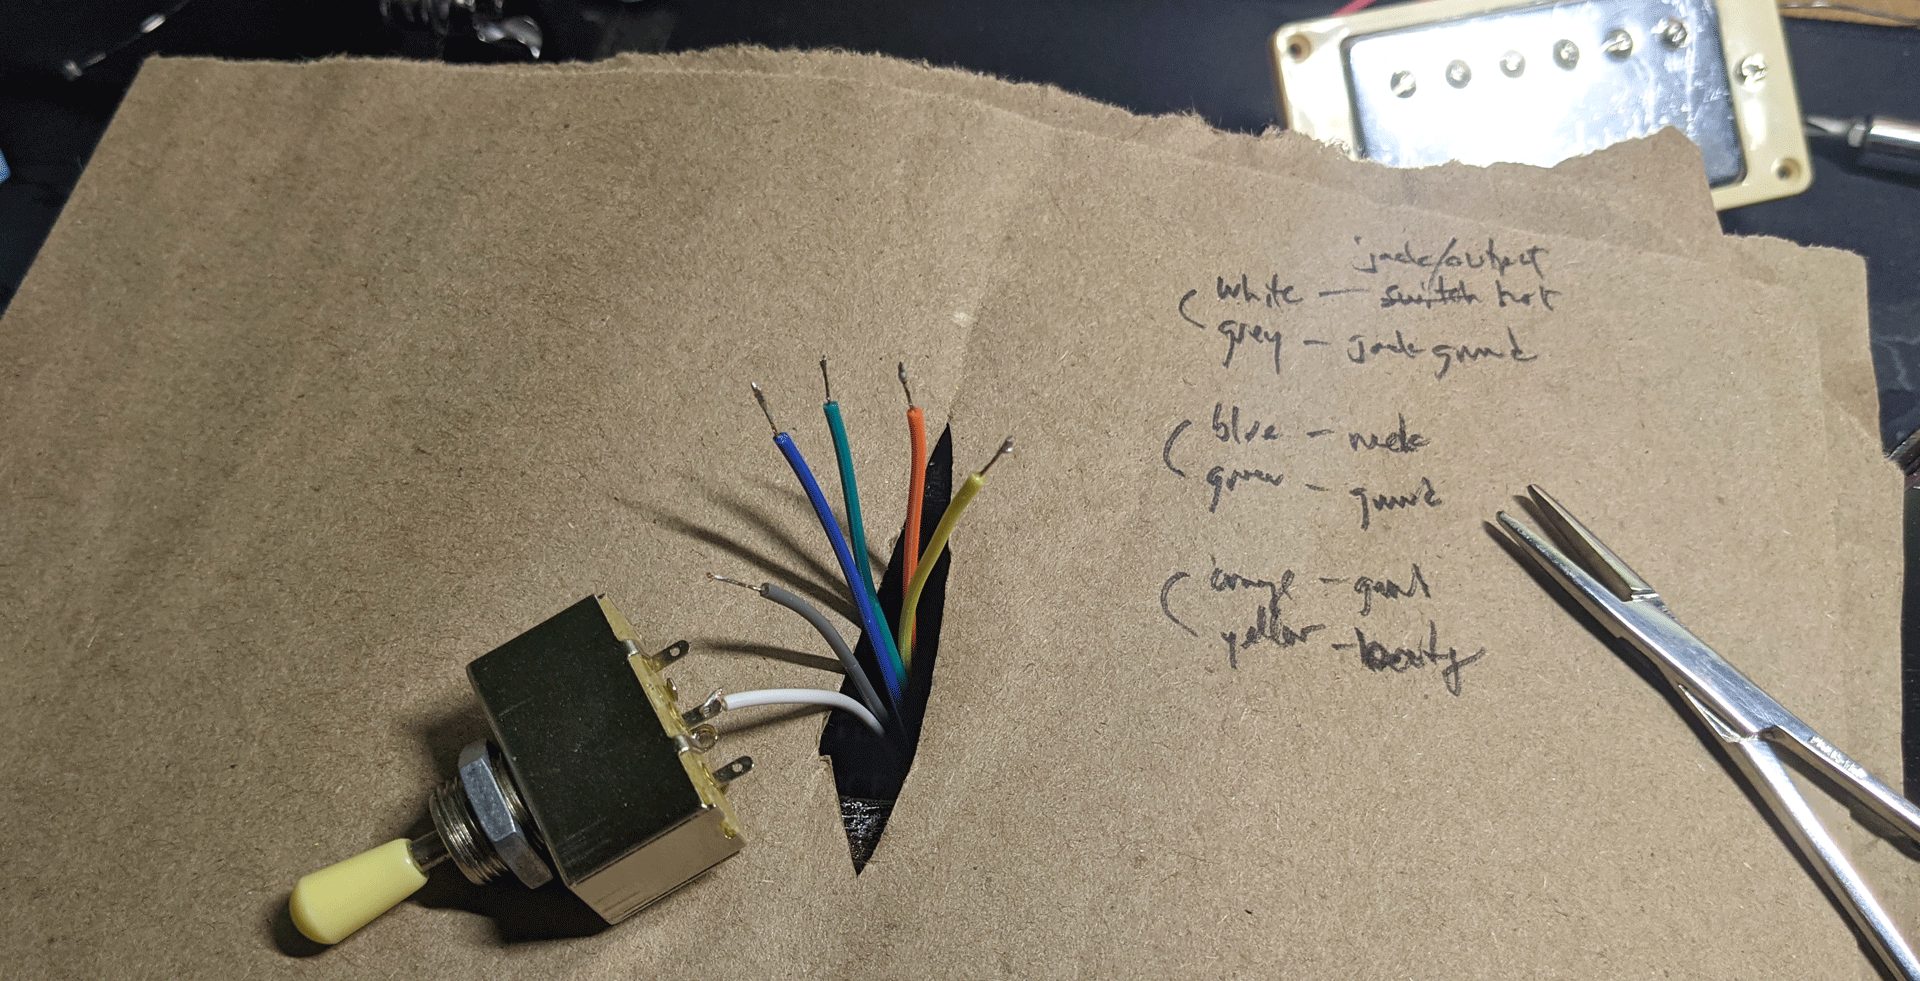 jack/output
white — switch hot
grey — jack ground
blue — neck
green — ground
orange — ground
yellow —